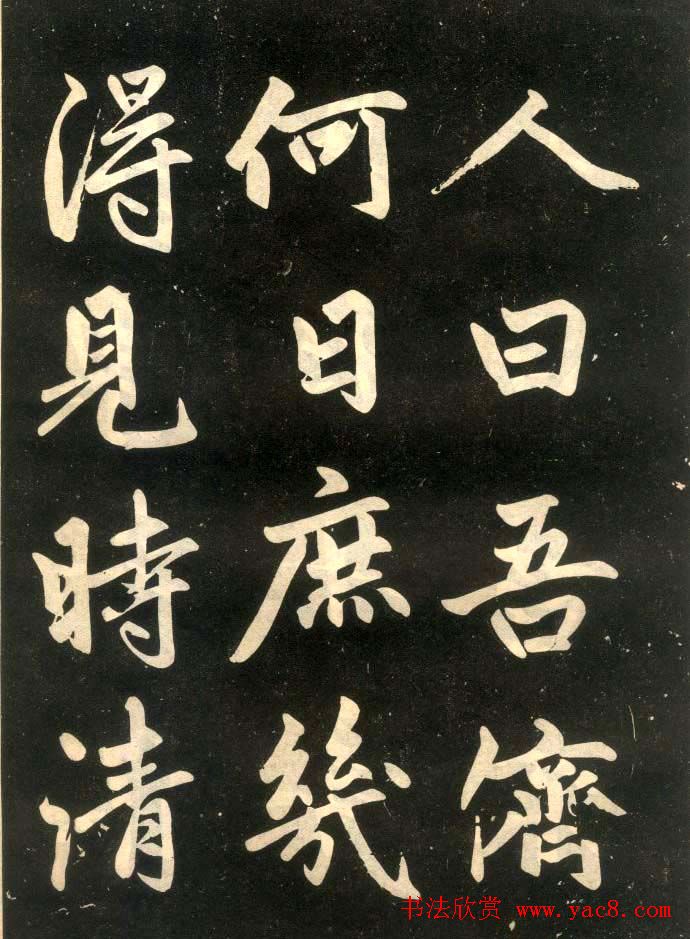 人曰吾儕
何日庶幾
得見時清
书法欣赏 www.yac8.com